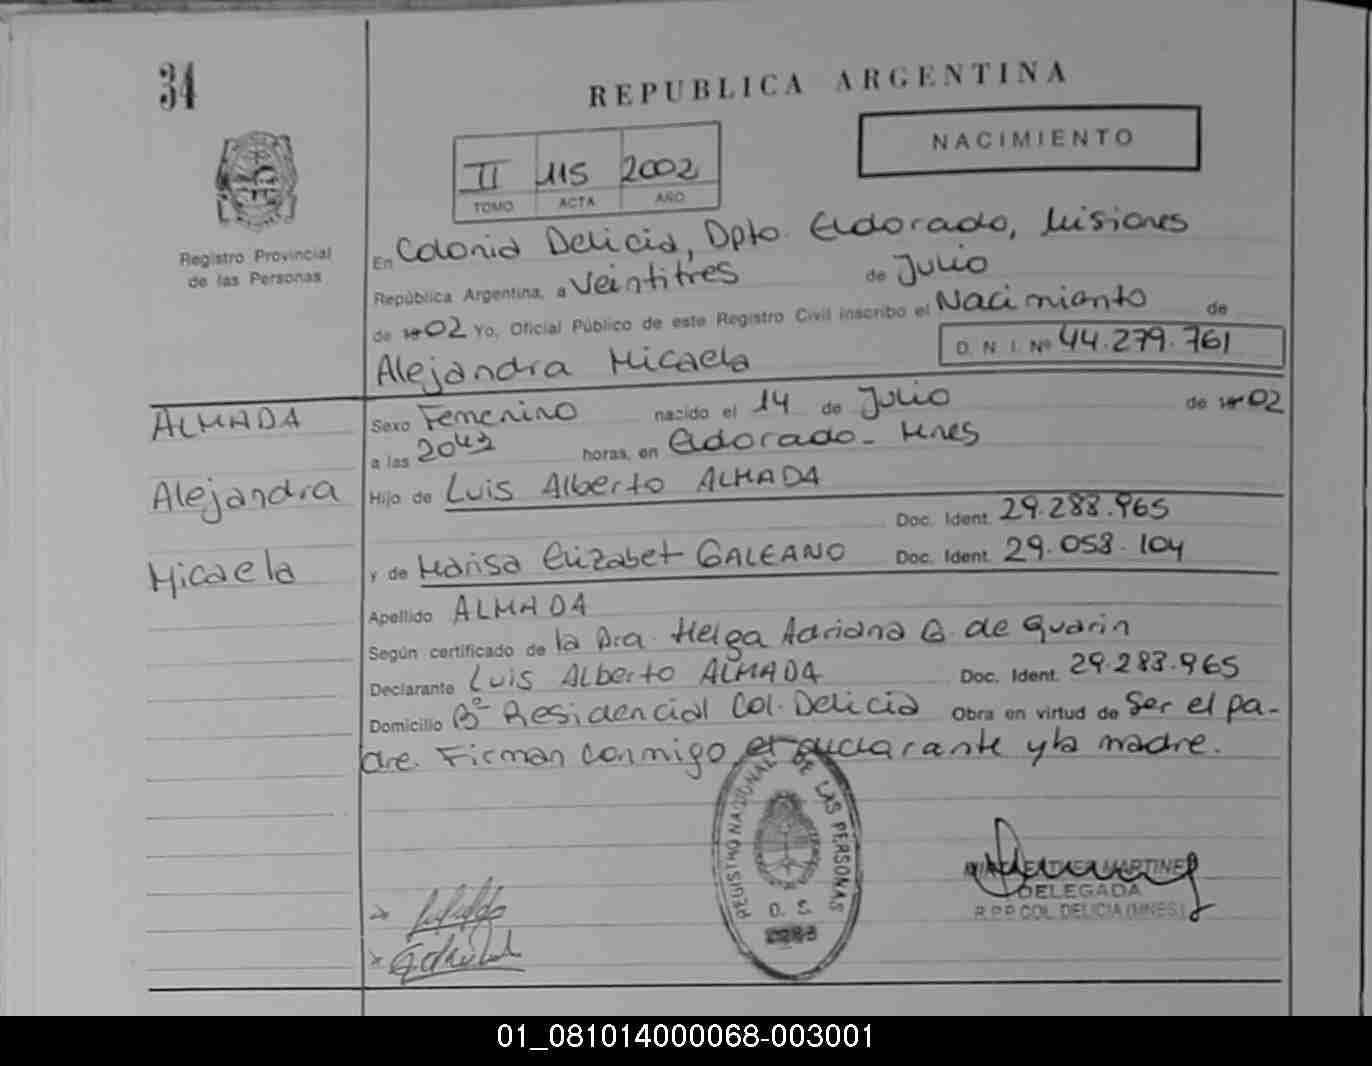 34
REPUBLICA ARGENTINA
NACIMIENTO
II 115 2002
TOMO ACTA AÑO
Registro Provincial
de las Personas
En Colonia Delicia, Dpto. Eldorado, Misiones
República Argentina, a Veintitres de Julio
de 02 Yo, Oficial Público de este Registro Civil inscribo el Nacimiento de
Alejandra Micaela D. N. I. Nº 44.279.761
ALMADA
Alejandra
Micaela
Sexo Femenino nacido el 14 de Julio de 02
a las horas, en Eldorado - Mnes
Hijo de Luis Alberto ALMADA
Doc. Ident. 29.288.965
y de Marisa Elizabet GALEANO Doc. Ident. 29.058.104
Apellido ALMADA
Según certificado de la Dra. Helga Adriana G. de Guarin
Declarante Luis Alberto ALMADA Doc. Ident. 29.283.965
Domicilio Bº Residencial Col. Delicia Obra en virtud de Ser el pa-
dre. Firman conmigo el declarante y la madre.
REGISTRO NACIONAL DE LAS PERSONAS
D. S.
MARTINEZ
DELEGADA
R.P.P. COL. DELICIA (MNES)
01_081014000068-003001